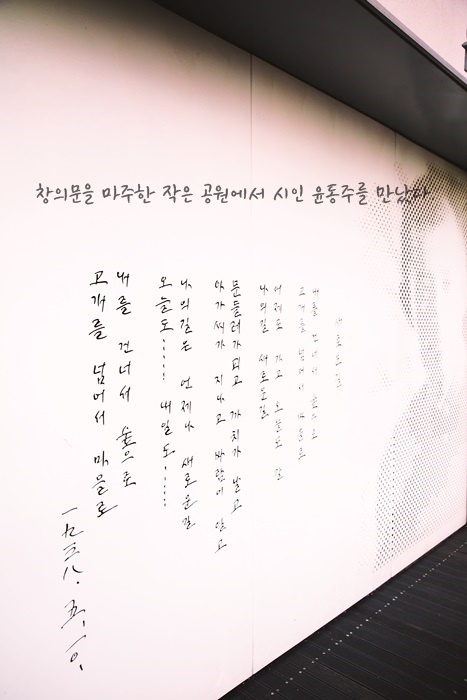 창의문을 마주한 작은 공원에서 시인 윤동주를 만났다
새로운 길
내를 건너서 숲으로
고개를 넘어서 마을로
어제도 가고 오늘도 갈
나의길 새로운길
문들레가 피고 까치가 날고
아가씨가 지나고 바람이 일고
나의길은 언제나 새로운길
오늘도…… 내일도……
내를 건너서 숲으로
고개를 넘어서 마을로
一九三八. 五. 一○.